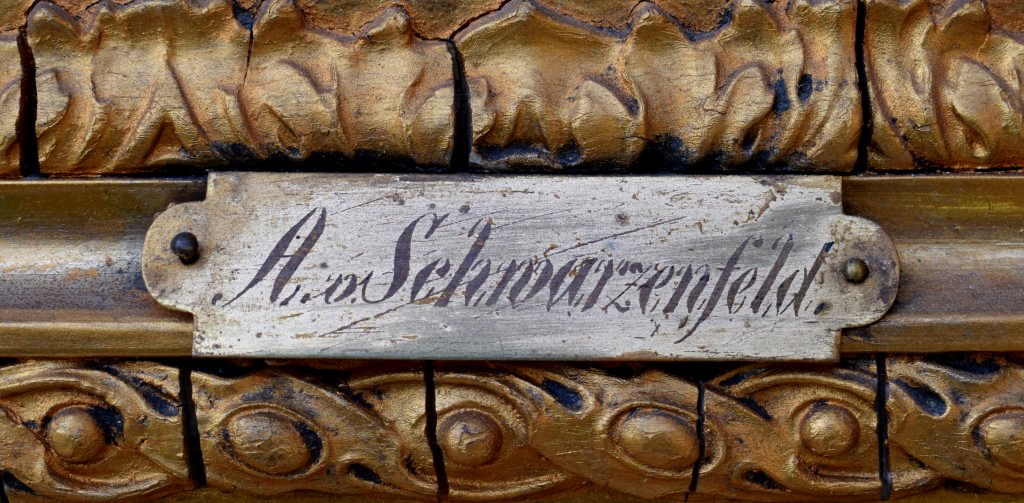 A. v. Schwarzenfeld.